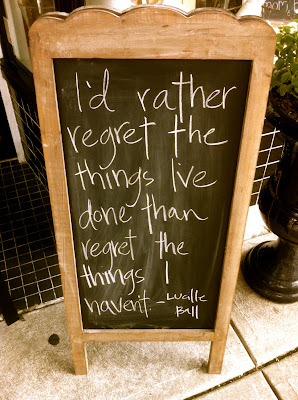 I'd rather
regret the
things Ive
done than
regret the
things I
havent. - Lucille
Ball